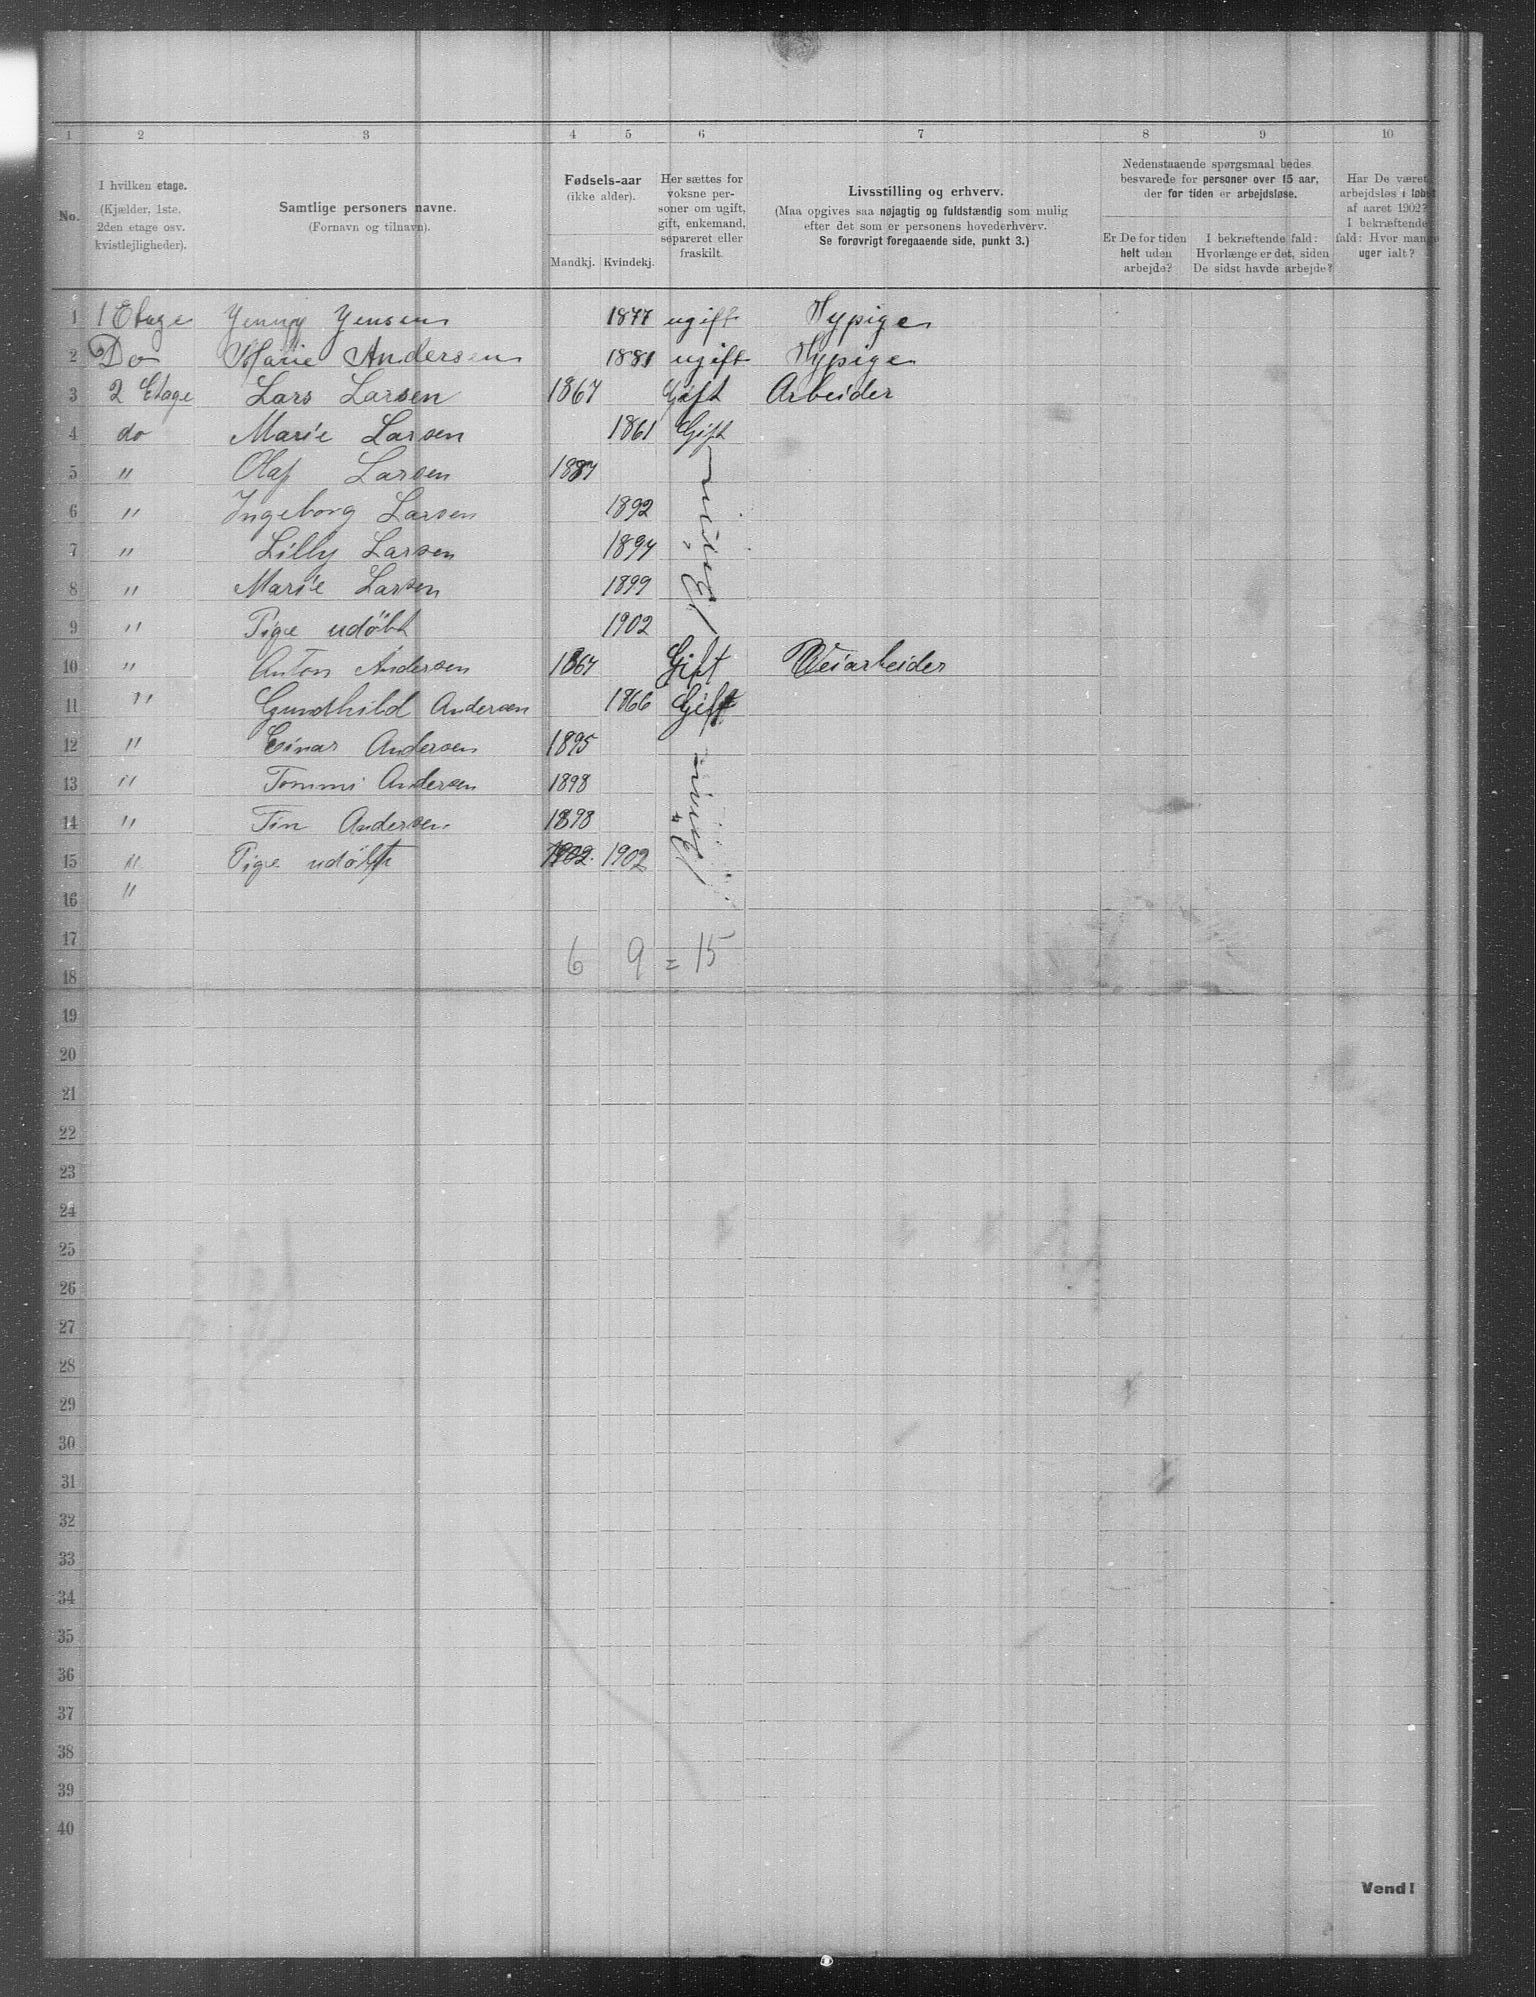 1 2 3 4 5 6 7 8 9 10
No.
I hvilken etage.
(Kjælder, 1ste.
2den etage osv.
kvistlejligheder).
Samtlige personers navne.
(Fornavn og tilnavn).
Fødsels-aar
(ikke alder).
Mandkj. Kvindekj.
Her sættes for
voksne per-
soner om ugift,
gift, enkemand,
separeret eller
fraskilt.
Livsstilling og erhverv.
(Maa opgives saa nøjagtig og fuldstændig som mulig
efter det som er personens hovederhverv.
Se forøvrigt foregaaende side, punkt 3.)
Nedenstaaende spørgsmaal bedes
besvarede for personer over 15 aar,
der for tiden er arbejdsløse.
Er De for tiden
helt uden
arbejde?
I bekræftende fald:
Hvorlænge er det, siden
De sidst havde arbejde?
Har De været
arbejdsløs i løbet
af aaret 1902?
I bekræftende
fald: Hvor mange
uger ialt?
1 1 Etage Jenny Jensen 1877 ugift Sypige
2 Do Marie Andersen 1881 ugift Sypige
3 2 Etage Lars Larsen 1867 Gift Arbeider
4 do Marie Larsen 1861 Gift
5 " Olaf Larsen 1887
6 " Ingeborg Larsen 1892
7 " Lilly Larsen 1894
8 " Marie Larsen 1899
9 " Pige udøbt 1902
10 " Anton Andersen 1867 Gift Veiarbeider
11 " Gundhild Andersen 1866 Gift
12 " Einar Andersen 1895
13 " Tommi Andersen 1898
14 " Tin Andersen 1898
15 " Pige udøbt 1902. 1902
16 "
17
6 9 = 15
18
19
20
21
22
23
24
25
26
27
28
29
30
31
32
33
34
35
36
37
38
39
40
Vend!